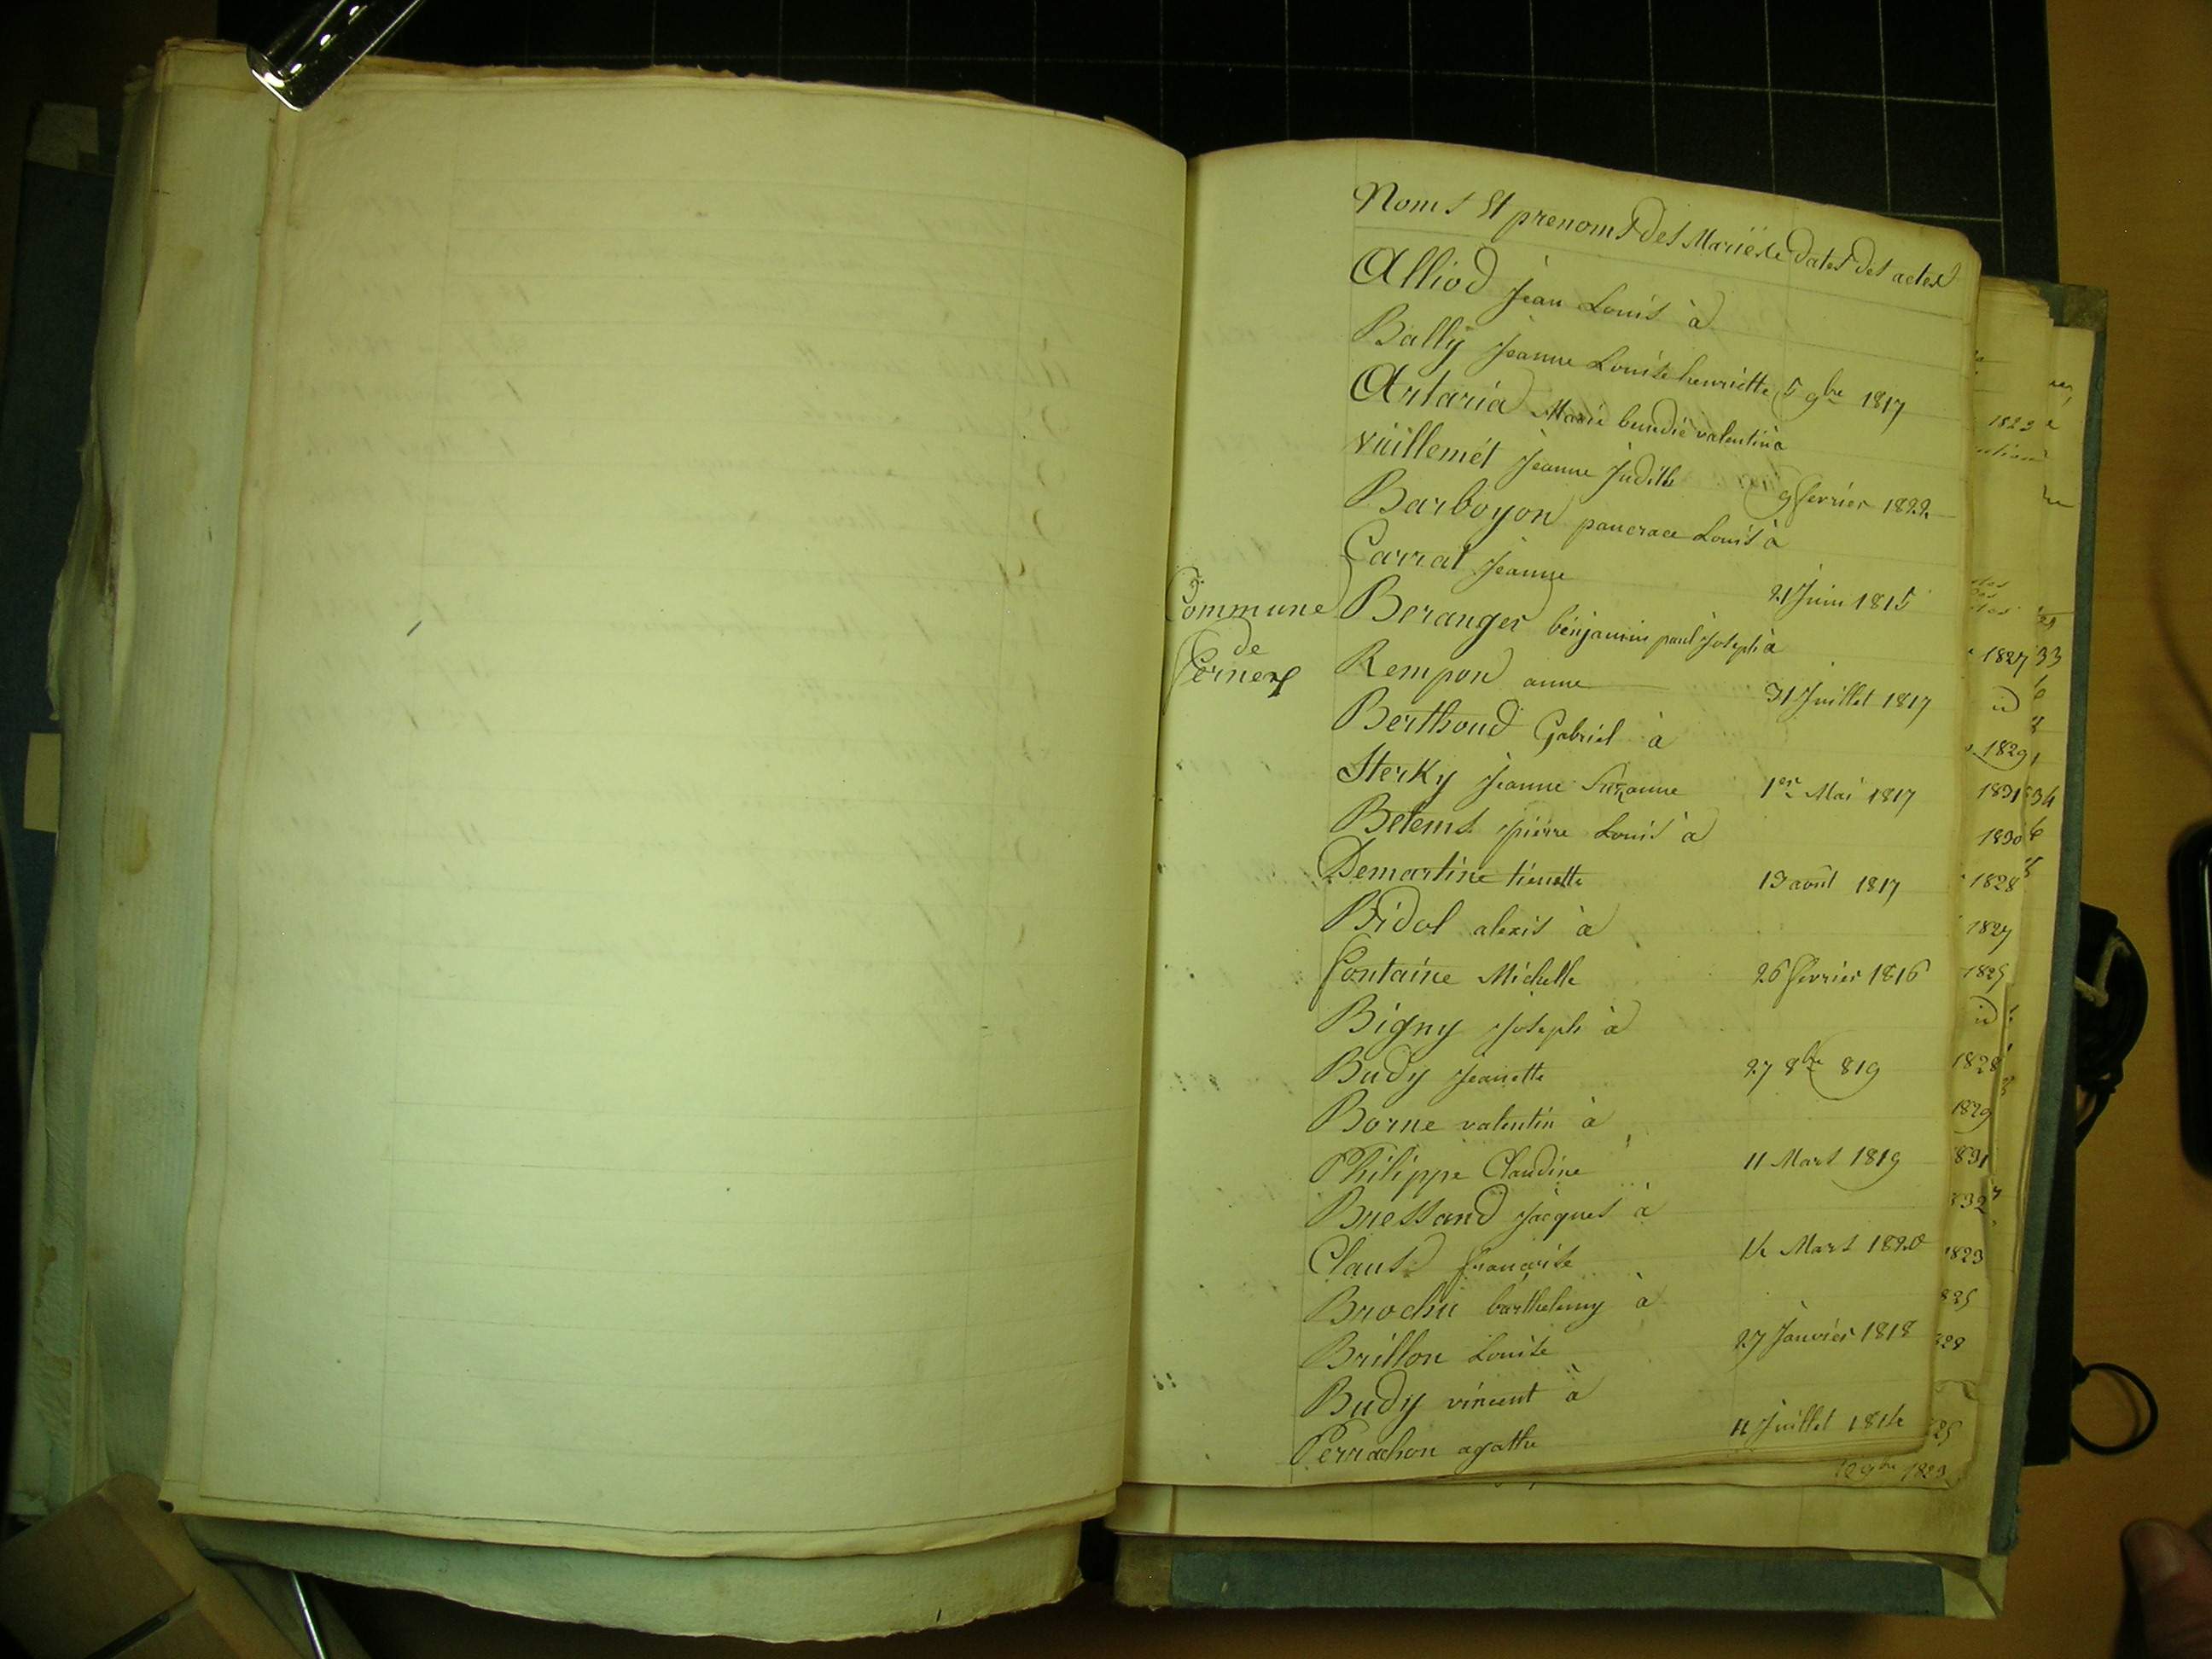 Noms Et prenoms des Mariés Le dates des actes
Alliod Jean Louis à
Bally Jeanne Louise henriette 5 9bre 1817
Artaria Marie benedic valentin à
Vuillemét Jeanne Judith 9 fevrier 1822
Barboyon pancrace Louis à
Carrat Jeanne 21 Juin 1815
Commune
de
Fernex
Beranger bénjamin paul Joseph à
Rempon anne 31 Juillet 1817
Berthoud Gabriel à
Sterky Jeanne Suzanne 1er Mai 1817
Betems pierre Louis à
Demartine tienette 13 août 1817
Bidal alexis à
Fontaine Michelle 26 fevrier 1816
Bigny Joseph à
Budy Jeanette 27 8bre 819
Borne valentin à
Philippe Claudine 11 Mars 1819
Bressand Jacques à
Claus francoise 14 Mars 1820
Brochu barthelemy à
Brillon Louise 27 Janvier 1818
Budy vincent à
Perrachon agathe 11 Juillet 1814
1823
1827
id
1829
1831
1830
1828
1827
1825
id
1828
1829
831
832
1823
825
828
25
12 9bre 1823
33
34